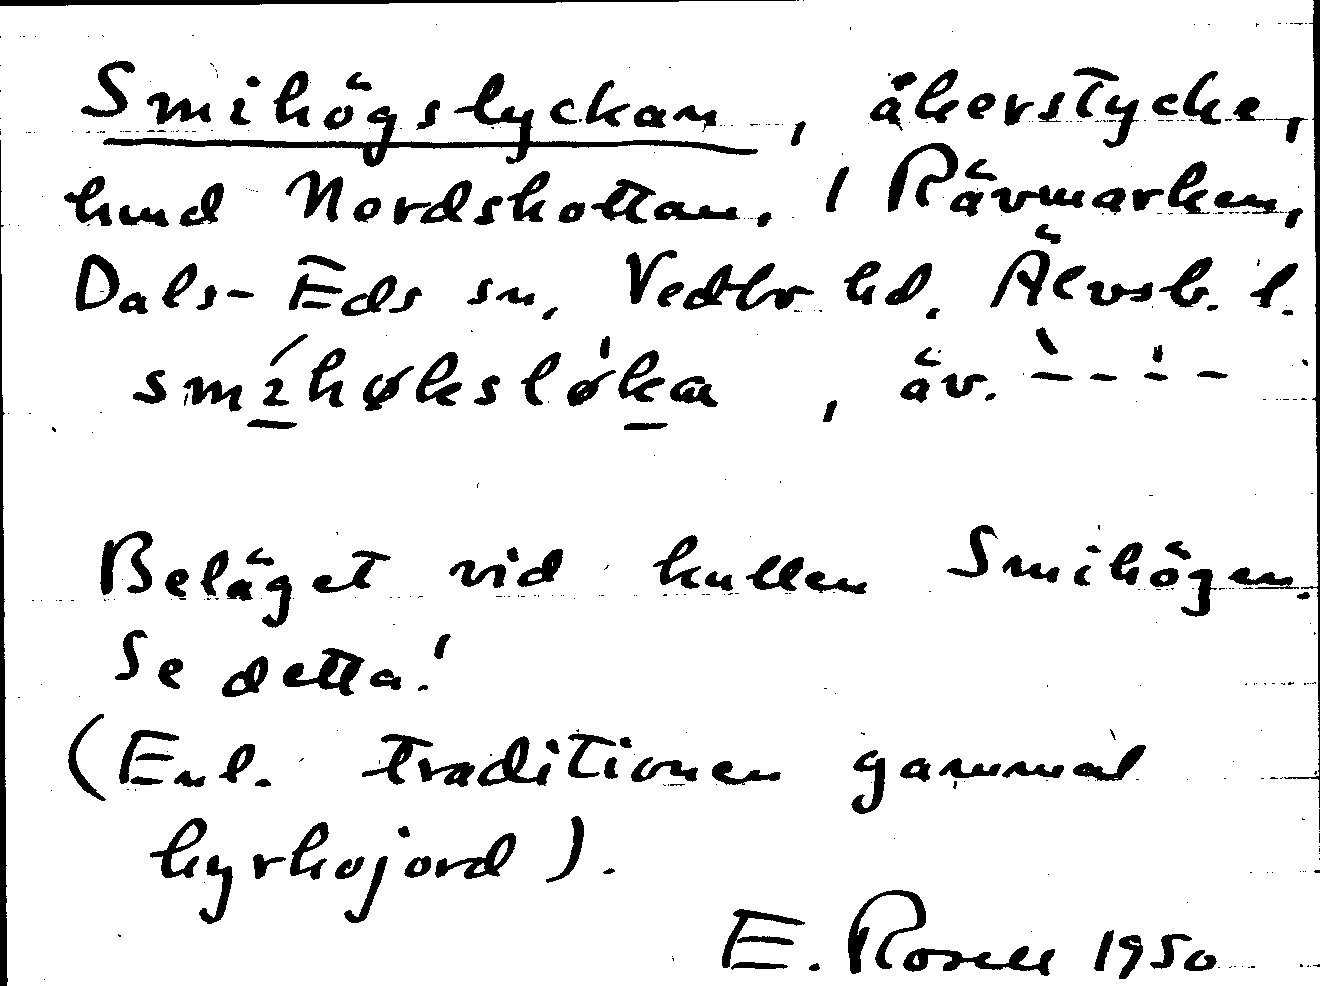 Smihögslyckan, åkerstycke,
hmd Nordskottan, 1 Rävmarken,
Dals-Eds sn, Vedbo hd, Älvsb. l.
smíhøkslø̀ka, äv. ̀- - ̍- -
Beläget vid kullen Smihögen.
Se detta!
(Enl. traditionen gammal
kyrkojord).
E. Rosell 1950